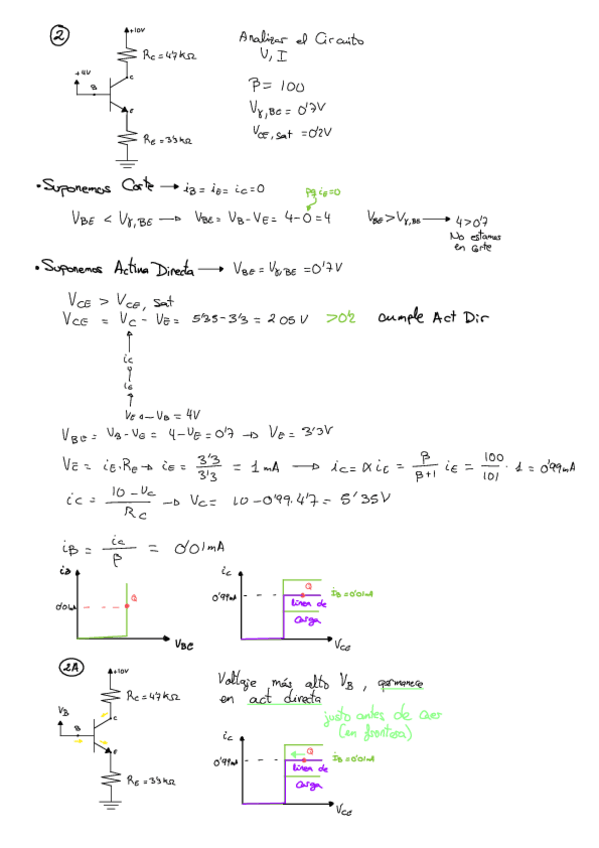 2
+10V
Rc = 4'7kΩ
C
+4V
B
E
RE = 3'3kΩ
Analizar el Circuito
V, I
β = 100
Vγ,BE = 0'7V
VCE,sat = 0'2V
• Suponemos Corte → iB = iE = iC = 0
pq iE = 0
VBE < Vγ,BE → VBE = VB - VE = 4 - 0 = 4
VBE > Vγ,BE → 4 > 0'7
No estamos
en Corte
• Suponemos Activa Directa → VBE = VγBE = 0'7V
VCE > VCE, sat
VCE = VC - VE = 5'35 - 3'3 = 2'05 V >0'2 cumple Act Dir
ic
iE
VE ← VB = 4V
VBE = VB - VE = 4 - VE = 0'7 → VE = 3'3V
VE = iE · RE → iE = 3'3/3'3 = 1 mA → iC = α iE = β/β+1 iE = 100/101 · 1 = 0'99mA
iC = 10 - VC/RC → VC = 10 - 0'99 · 4'7 = 5'35V
iB = iC/β = 0'01mA
iB
Q
VBE
iC
0'99mA
Q
IB = 0'01mA
línea de
Carga
VCE
2A
+10V
Rc = 4'7kΩ
C
VB
B
E
RE = 3'3kΩ
Voltaje más alto VB, permanece
en act directa
justo antes de caer
(en frontera)
iC
0'99mA
Q
IB = 0'01mA
línea de
Carga
VCE